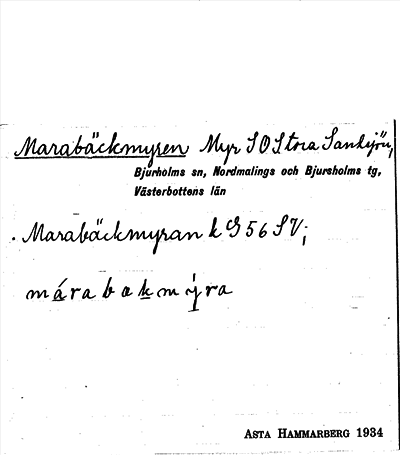 Marabäckmyren Myr S O Stora Sandsjön,
Bjurholms sn, Nordmalings och Bjursholms tg,
Västerbottens län
. Marabäckmyran k G 56 SV;
márabakmýra
ASTA HAMMARBERG 1934